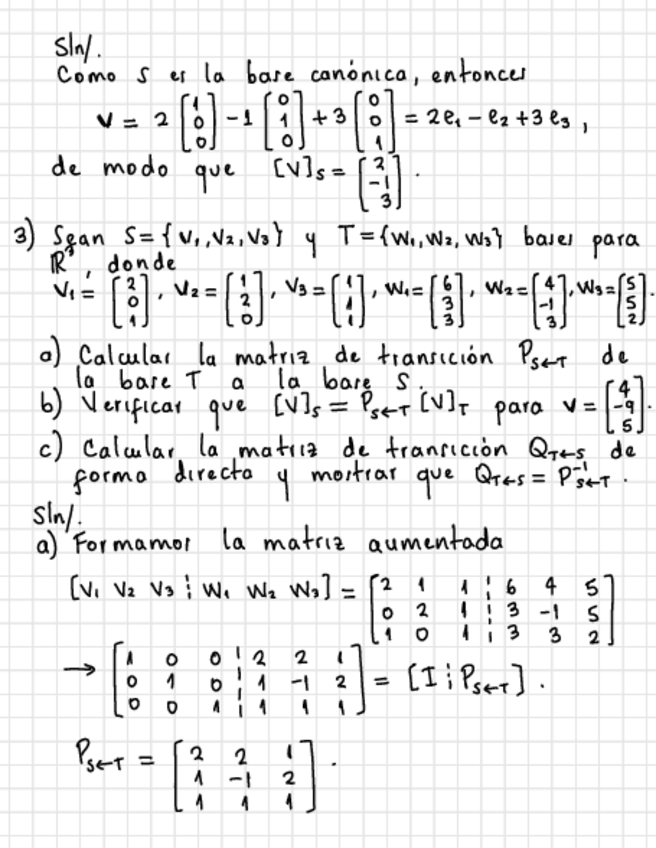 Sln/.
Como S es la base canónica, entonces
V = 2 [1 0 0] - 1 [0 1 0] + 3 [0 0 1] = 2e₁ - e₂ + 3e₃ ,
de modo que [V]s = [2 -1 3] .
3) Sean S = { V₁, V₂, V₃ } y T = { W₁, W₂, W₃ } bases para
ℝ³, donde
V₁ = [2 0 1] , V₂ = [1 2 0] , V₃ = [1 1 1] , W₁ = [6 3 3] , W₂ = [4 -1 3] , W₃ = [5 5 2] .
a) Calcular la matriz de transición P_{S←T} de
la base T a la base S.
b) Verificar que [V]s = P_{S←T} [V]_T para V = [4 -9 5] .
c) Calcular la matriz de transición Q_{T←S} de
forma directa y mostrar que Q_{T←S} = P⁻¹_{S←T} .
Sln/.
a) Formamos la matriz aumentada
[V₁ V₂ V₃ ¦ W₁ W₂ W₃] = [2 1 1 ¦ 6 4 5
0 2 1 ¦ 3 -1 5
1 0 1 ¦ 3 3 2]
→ [1 0 0 ¦ 2 2 1
0 1 0 ¦ 1 -1 2
0 0 1 ¦ 1 1 1] = [I ¦ P_{S←T}] .
P_{S←T} = [2 2 1
1 -1 2
1 1 1] .